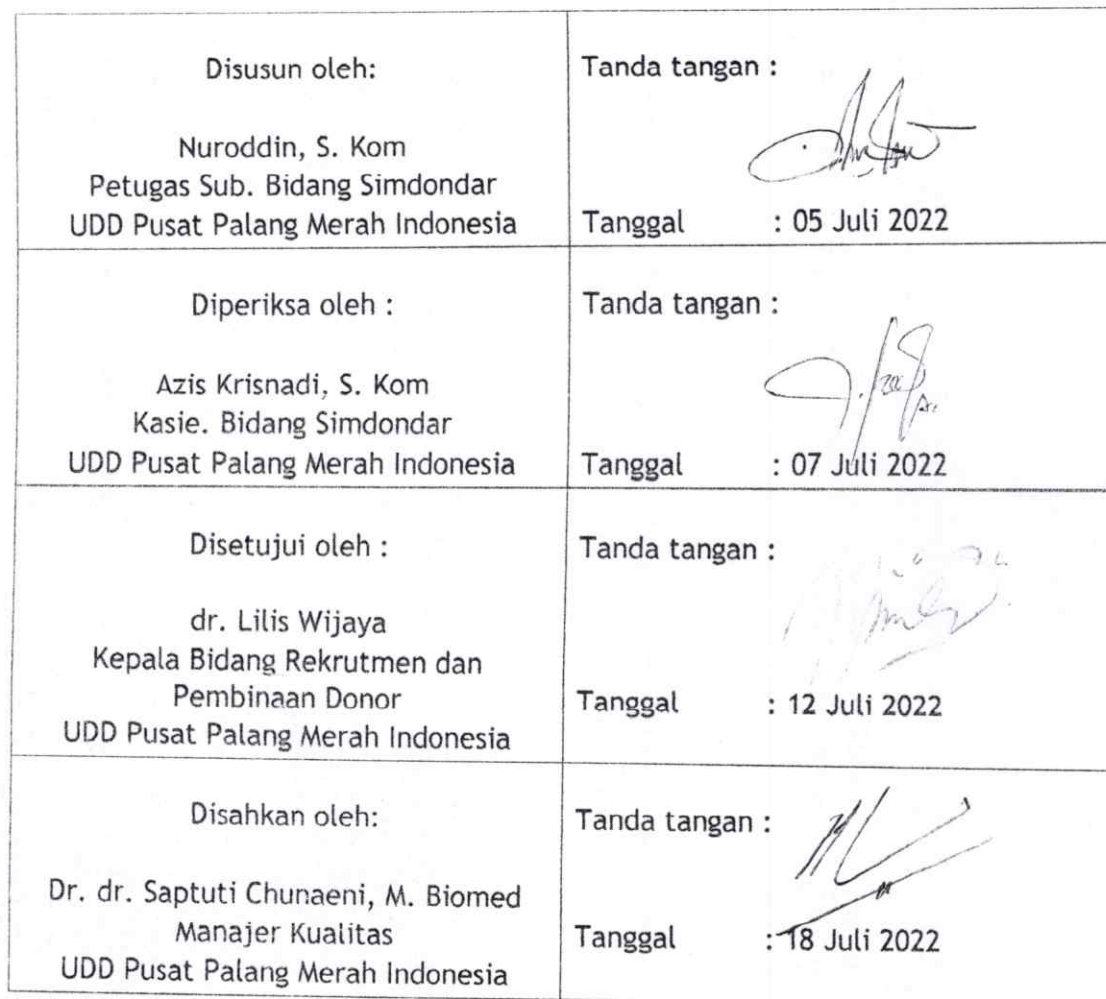 Disusun oleh:
Nuroddin, S. Kom
Petugas Sub. Bidang Simdondar
UDD Pusat Palang Merah Indonesia
Tanda tangan :
Tanggal : 05 Juli 2022
Diperiksa oleh :
Azis Krisnadi, S. Kom
Kasie. Bidang Simdondar
UDD Pusat Palang Merah Indonesia
Tanda tangan :
Tanggal : 07 Juli 2022
Disetujui oleh :
dr. Lilis Wijaya
Kepala Bidang Rekrutmen dan
Pembinaan Donor
UDD Pusat Palang Merah Indonesia
Tanda tangan :
Tanggal : 12 Juli 2022
Disahkan oleh:
Dr. dr. Saptuti Chunaeni, M. Biomed
Manajer Kualitas
UDD Pusat Palang Merah Indonesia
Tanda tangan :
Tanggal : 18 Juli 2022